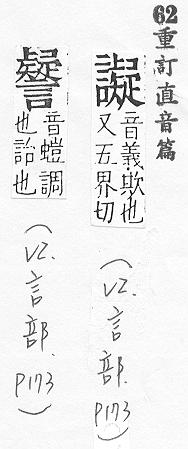 62重訂直音篇
譺
音義欺也
又五界切
(V2.言部.P173)
音螘調
也詒也
(V2.言部.P173)